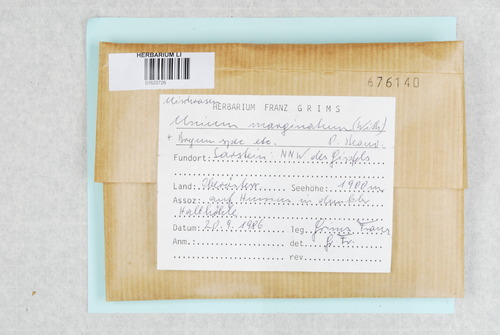 HERBARIUM LI
676140
Mischrasen
HERBARIUM FRANZ GRIMS
Mnium marginatum (With.)
+ Bryum spec etc. P. Beauv.
Fundort: Sarstein: NNW des Gipfels
Land: Oberösterr. Seehöhe: 1900m
Assoz: auf Humus in dunkler
Halbhöhle
Datum: 20.9.1986 leg. Grims Franz
Anm.: det. Gr. Fr.
rev.